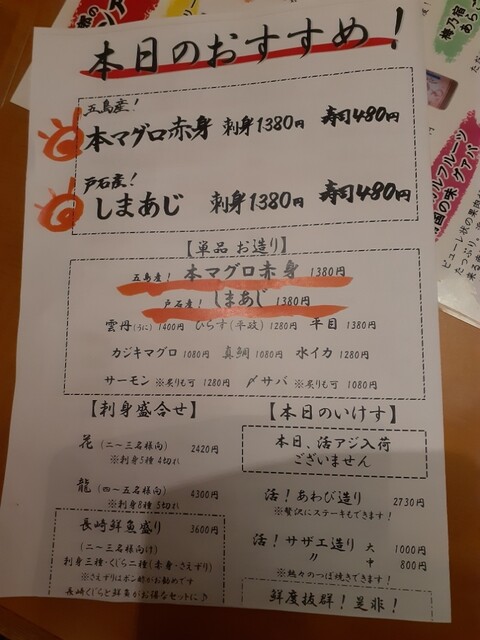 本日のおすすめ!
五島産!
本マグロ赤身 刺身1380円 寿司480円
戸石産!
しまあじ 刺身1380円 寿司480円
【単品 お造り】
五島産! 本マグロ赤身 1380円
戸石産! しまあじ 1380円
雲丹(うに) 1400円 ひらす(平政) 1280円 平目 1380円
カジキマグロ 1080円 真鯛 1080円 水イカ 1280円
サーモン ※炙りも可 1280円 〆サバ ※炙りも可 1080円
【刺身盛合せ】
花 (二~三名様向) 2420円
※刺身5種 4切れ
龍 (四~五名様向) 4300円
※刺身8種 5切れ
長崎鮮魚盛り 3600円
(二~三名様向け)
刺身三種・くじら二種(赤身・さえずり)
※さえずりはポン酢がお勧めです
長崎くじらと鮮魚がお得なセットに♪
【本日のいけす】
本日、活アジ入荷
ございません
活!あわび造り 2730円
※贅沢にステーキもできます!
活!サザエ造り 大 1000円
〃 中 800円
※熱々のつぼ焼きできます!
鮮度抜群!是非!